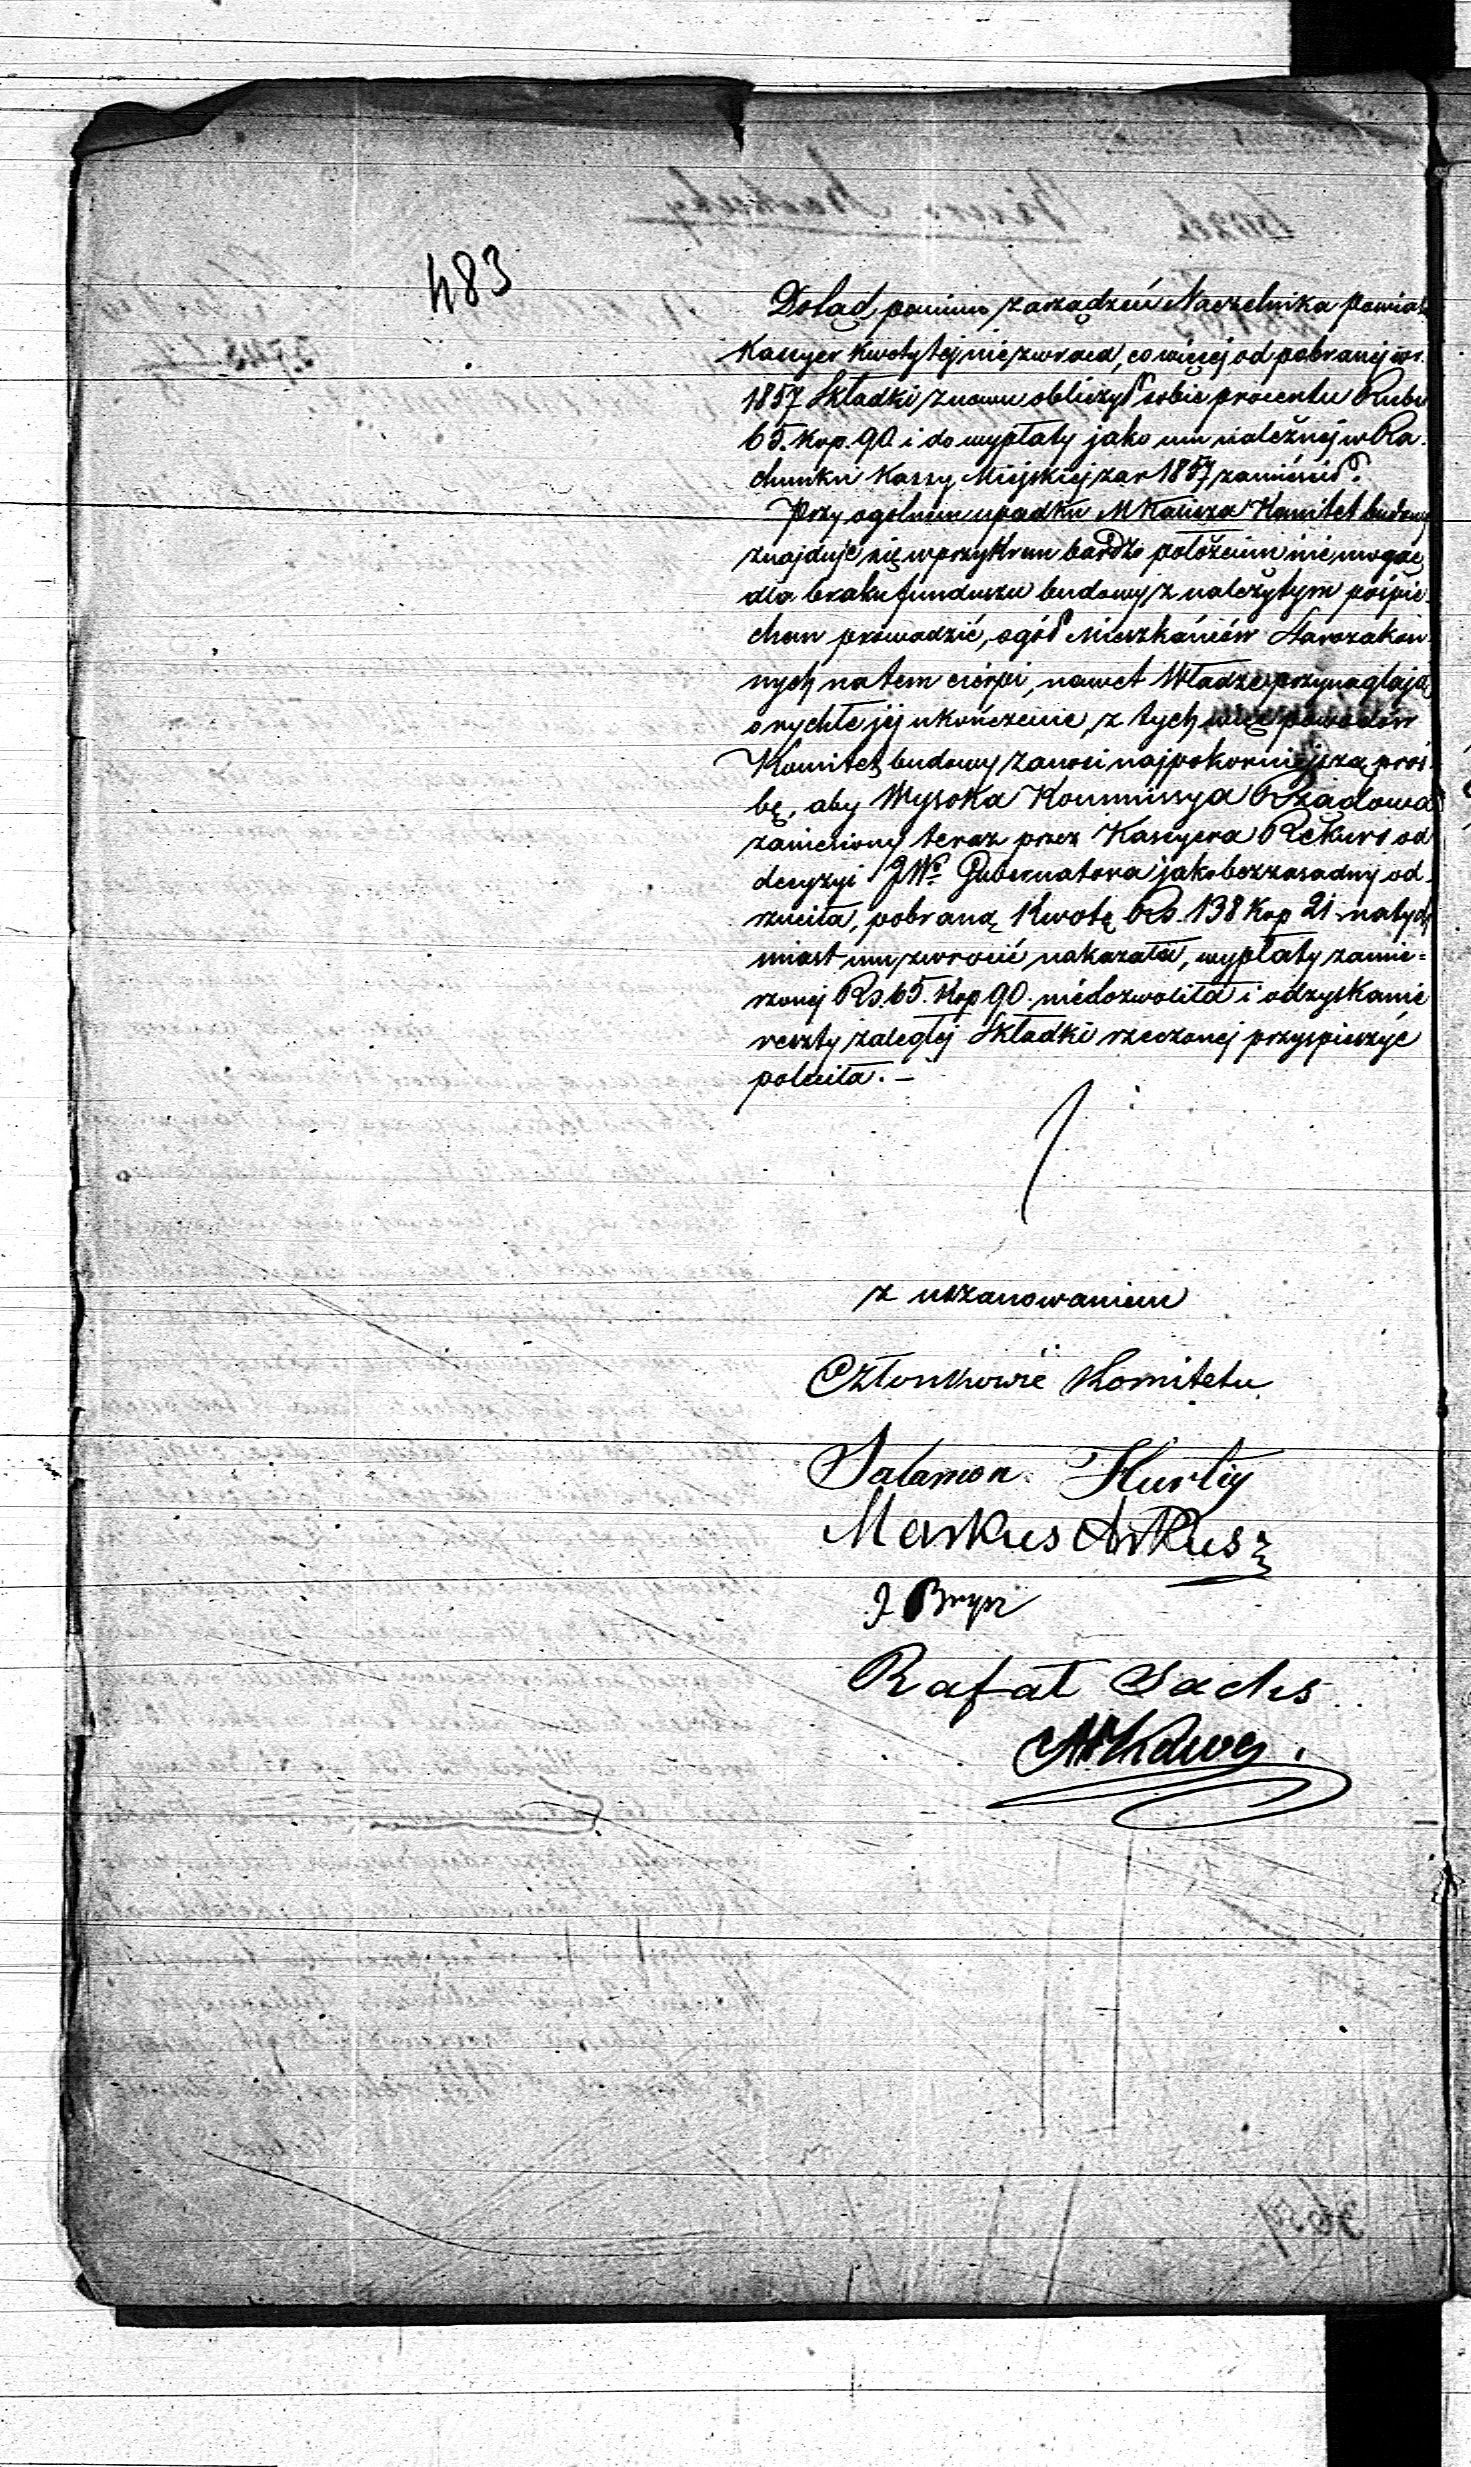 483
Dotąd pomimo zarządzeń Naczelnika Powiatu
Kassyer kwoty tej nie zwraca, co więcej od pobranej w r.
1857 Składki znowu obliczył sobie procentu Rubr
65. kop. 90 i do wypłaty jako mu należnej w Ra-
chunku Kassy Miejskiej za r 1857 zamieścił.
Przy ogólnem upadku M Kalisza Komitet budowy
znajduje się w przykrem bardzo położeniu nie mogąc
dla braku funduszu budowy z należytym pośpie-
chem prowadzić, ogół Mieszkańców Starozakon-
nych na tem cierpi, nawet Władze przynaglają
o rychłe jej ukończenie, z tych więc powodów
Komitet budowy zanosi najpokorniejszą proś-
bę, aby Wysoka Kommissya Rządowa
zaniesiony teraz przez Kassyera Rekurs od
decyzyi JWo Gubernatora jako bezzasadny od-
rzuciła, pobraną kwotę Rs. 138 kop 21 natych
miast mu zwrócić nakazała, wypłaty zamie=
rzonej Rs. 65. kop 90. niedozwoliła i odzyskanie
reszty zaległej Składki rzeczonej przyspieszyć
poleciła. –
z uszanowaniem
Członkowie Komitetu
Salamon Hurtig
Markus Arkusz
J Bryn
Rafał Sachs